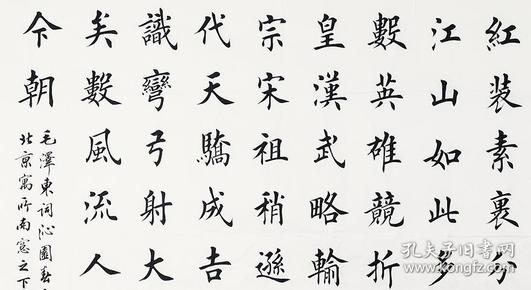 紅裝素裏分
江山如此多
數英雄競折
皇漢武略輸
宗宋祖稍遜
代天驕成吉
識彎弓射大
矣數風流人
今朝
毛澤東詞沁園春
北京寓所南窓之下
孔夫子旧书网
www.kongfz.com